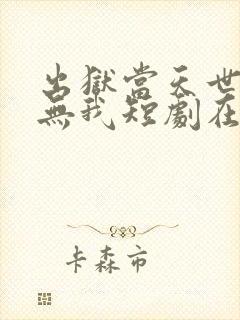 出獄當天世
無我短劇在
卡森市